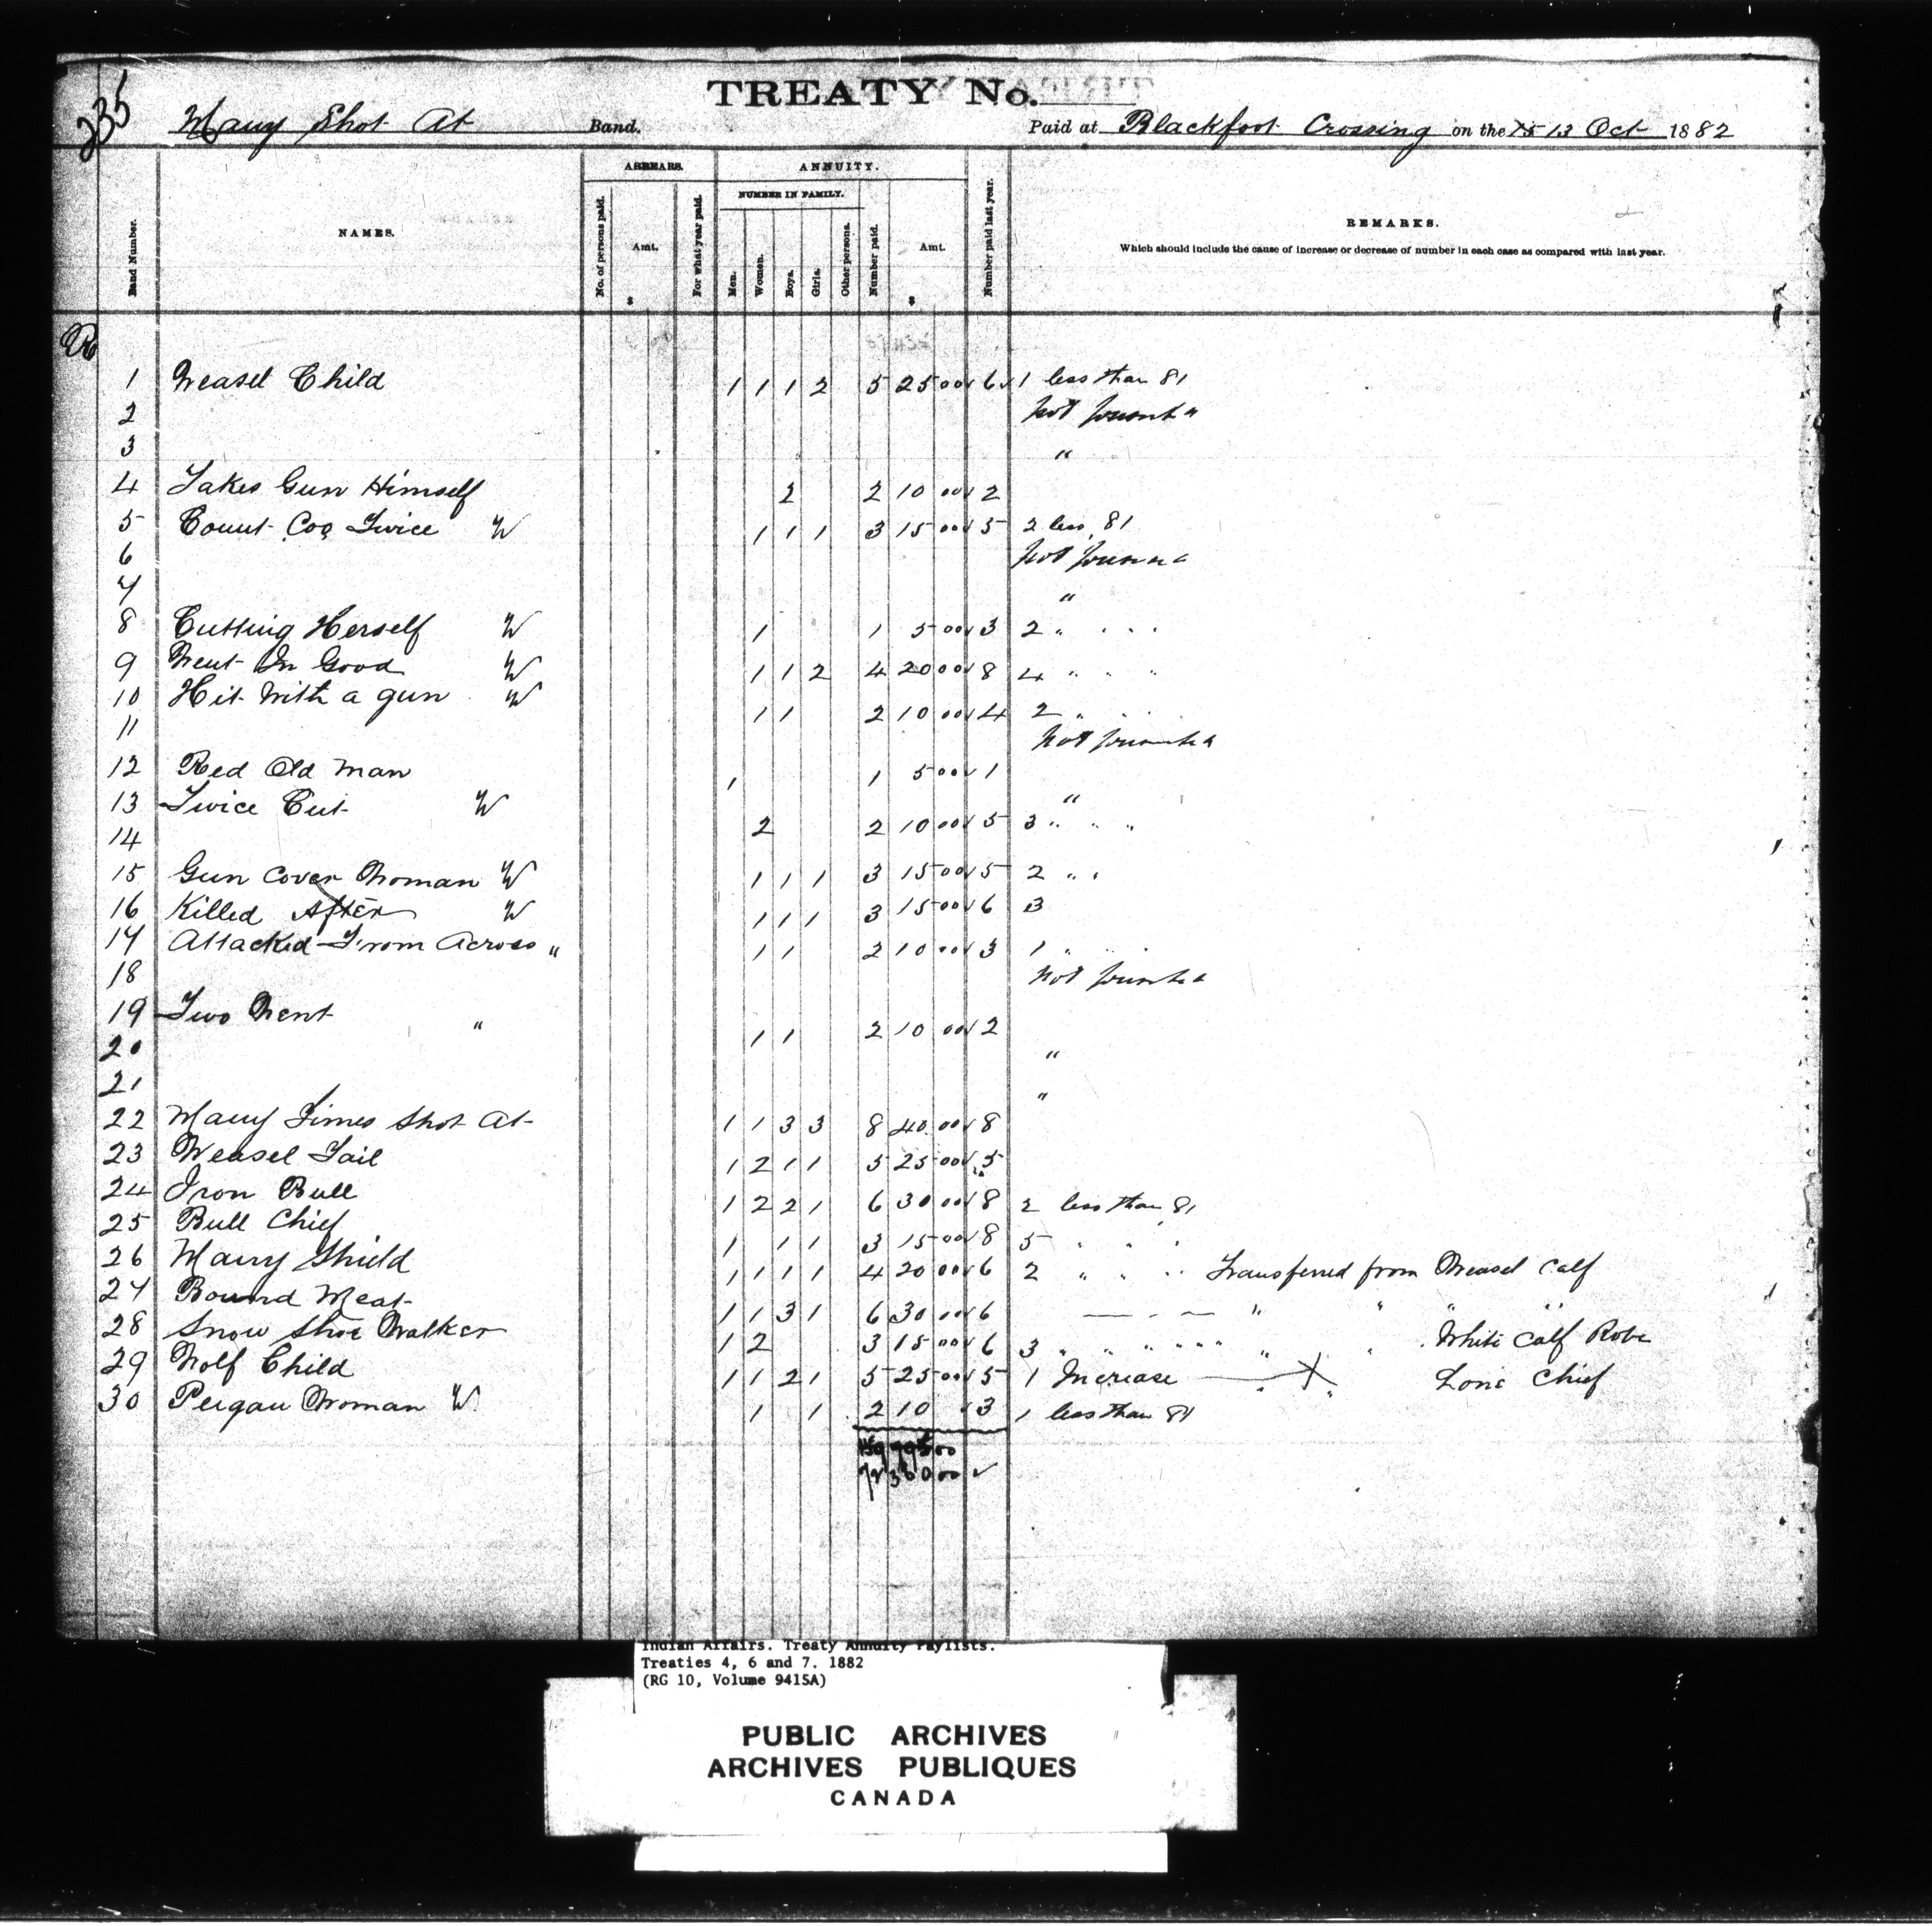 235
TREATY No.
Many Shot At Band. Paid at Blackfoot Crossing on the 15 13 Oct 1882
Band Number. NAMES. ARREARS. No. of persons paid. Amt. $ For what year paid. ANNUITY. NUMBER IN FAMILY. Men. Women. Boys. Girls. Other persons. Number paid. Amt. $ Number paid last year. REMARKS.
Which should include the cause of increase or decrease of number in each case as compared with last year.
1 Weasel Child 1 1 1 2 5 25 00 6 1 less than 81
2 Not presented
3 "
4 Takes Gun Himself 2 2 10 00 2
5 Count Coo Twice W 1 1 1 3 15 00 5 2 less 81
6 Not presented
7 "
8 Cutting Herself W 1 1 5 00 3 2 " " " "
9 Went In Good W 1 1 2 4 20 00 8 4 " " "
10 Hit With a gun W 1 1 2 10 00 4 2 " " "
11 Not presented
12 Red Old Man 1 1 5 00 1
13 Twice Cut W 2 2 10 00 5 3 " " "
14 "
15 Gun Cover Woman W 1 1 1 3 15 00 5 2 " "
16 Killed After W 1 1 1 3 15 00 6 3
17 Attacked From Across " 1 1 2 10 00 3 1 " "
18 Not presented
19 Two Went " 1 1 2 10 00 2
20 "
21 "
22 Many Times Shot At 1 1 3 3 8 40 00 8
23 Weasel Tail 1 2 1 1 5 25 00 5
24 Iron Bull 1 2 2 1 6 30 00 8 2 less than 81
25 Bull Chief 1 1 1 3 15 00 8 5 " " "
26 Many Shield 1 1 1 1 4 20 00 6 2 " " " Transferred from Weasel Calf
27 Bound Meat 1 1 3 1 6 30 00 6 — - — " " " "
28 Snow Shoe Walker 1 2 3 15 00 6 3 " " " " " " " White Calf Robe
29 Wolf Child 1 1 2 1 5 25 00 5 1 Increase " " Lone Chief
30 Peigan Woman W 1 1 2 10 3 1 less than 81
72 360 00
Indian Affairs. Treaty Annuity Paylists.
Treaties 4, 6 and 7. 1882
(RG 10, Volume 9415A)
PUBLIC ARCHIVES
ARCHIVES PUBLIQUES
CANADA